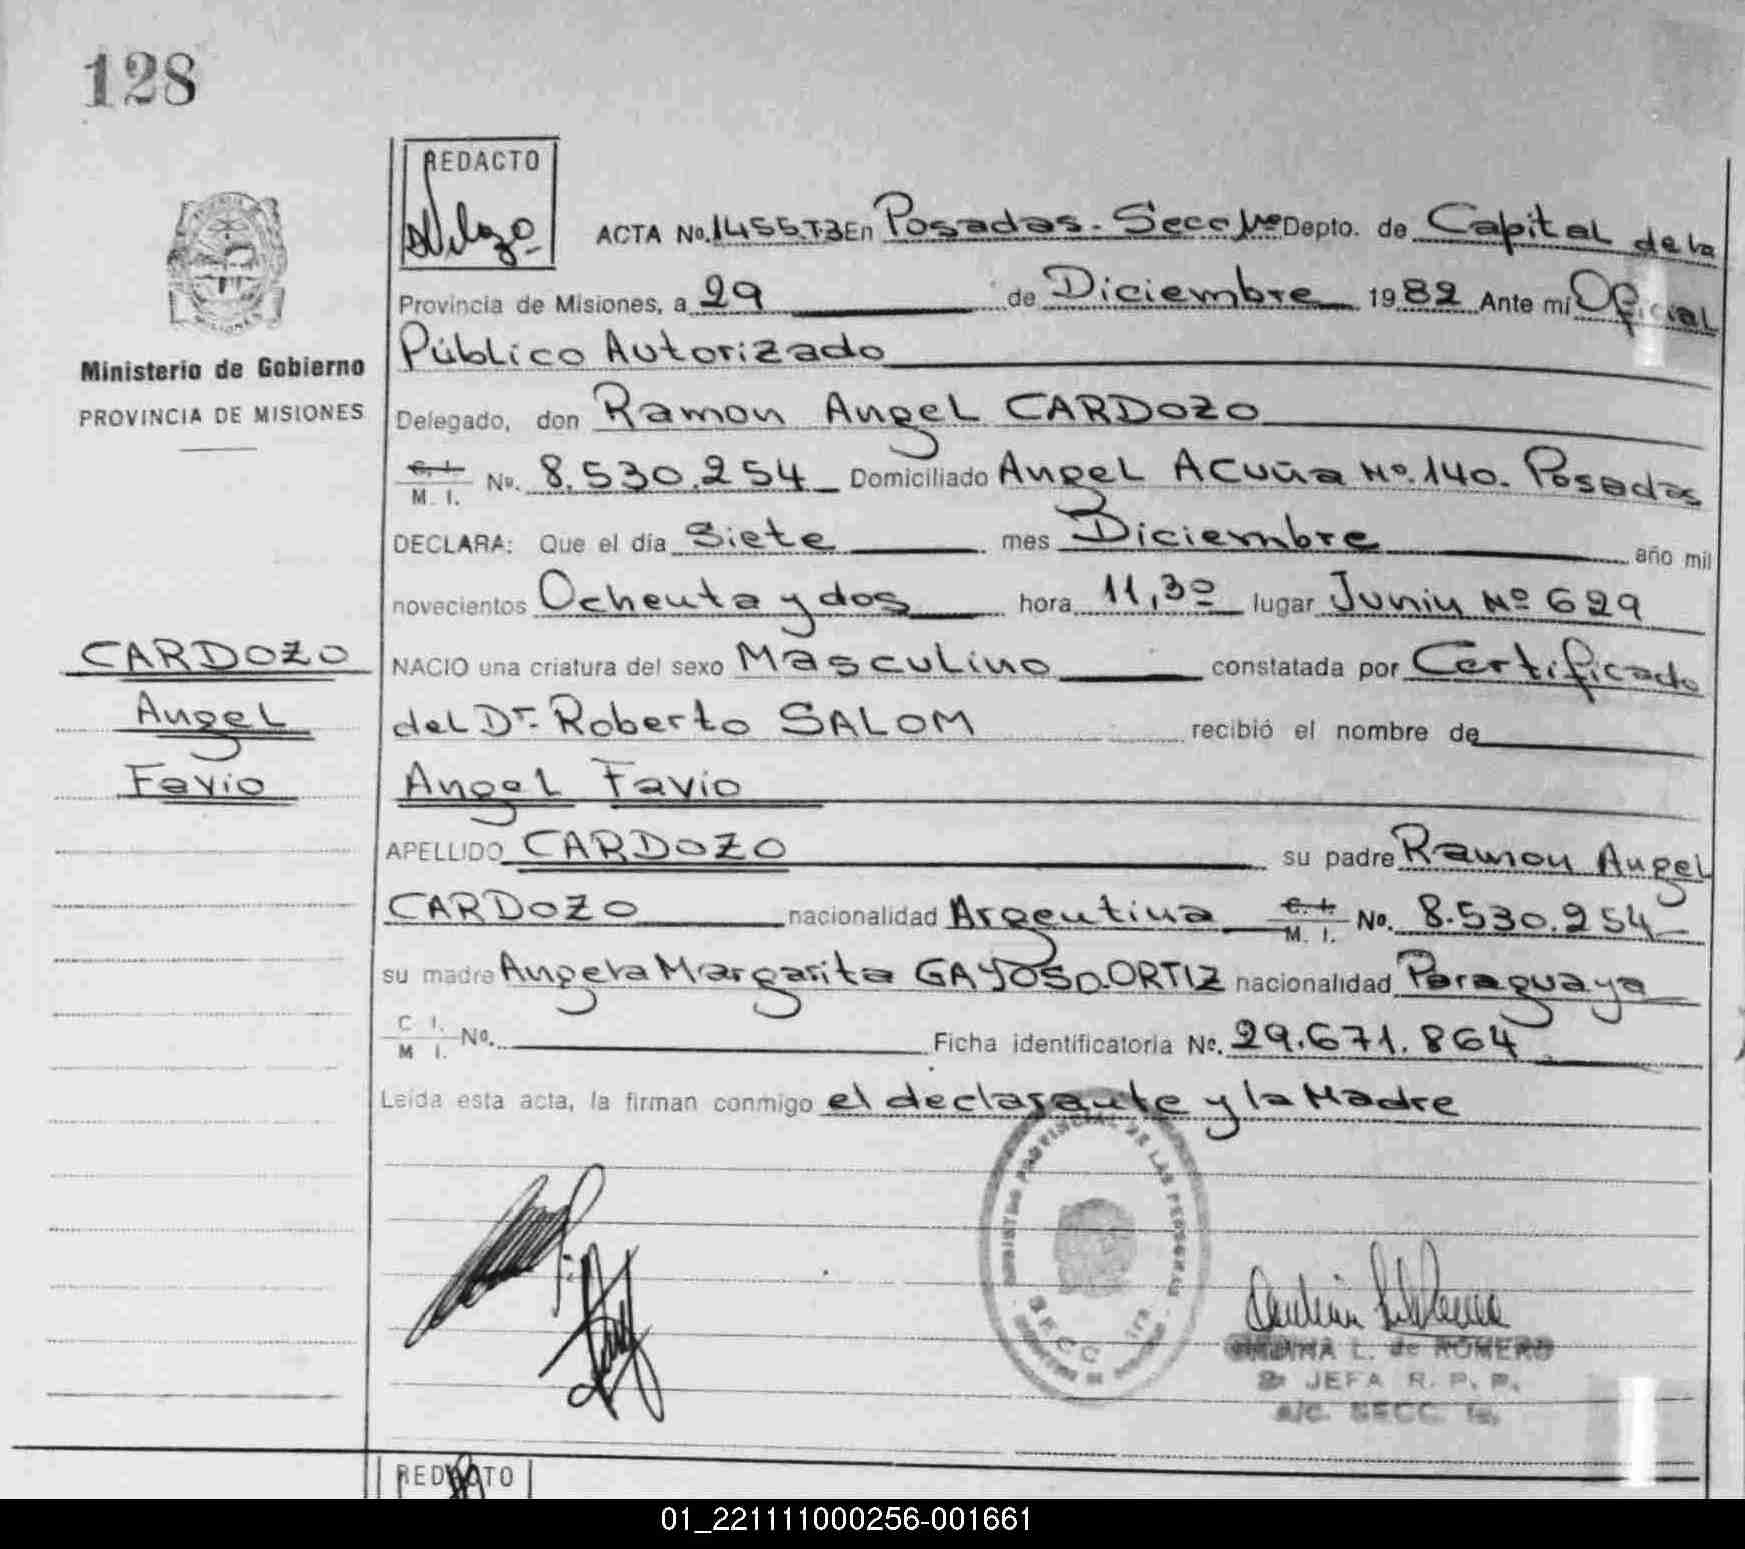 128
REDACTO
ACTA No. 1455 T3 En Posadas - Secc 1ra Depto. de Capital de la
Provincia de Misiones, a 29 de Diciembre 1982 Ante mí Oficial
Público Autorizado
Ministerio de Gobierno
PROVINCIA DE MISIONES
Delegado, don Ramon Angel CARDOZO
C. I. M. I. No. 8.530.254 Domiciliado Angel Acuña No. 140. Posadas
DECLARA: Que el día Siete mes Diciembre año mil
novecientos Ochenta y dos hora 11,30 lugar Junin No 629
CARDOZO
Angel
Favio
NACIO una criatura del sexo Masculino constatada por Certificado
del Dr. Roberto SALOM recibió el nombre de
Angel Favio
APELLIDO CARDOZO su padre Ramon Angel
CARDOZO nacionalidad Argentina C. I. M. I. No. 8.530.254
su madre Angela Margarita GAYOSO ORTIZ nacionalidad Paraguaya
C I. M I. No. Ficha identificatoria No. 29.671.864
Leída esta acta, la firman conmigo el declarante y la Madre
REGISTRO PROVINCIAL DE LAS PERSONAS
SECC 1ra
L. de ROMERO
JEFA R. P. P.
a/c. SECC. 1a.
REDACTO
01_221111000256-001661